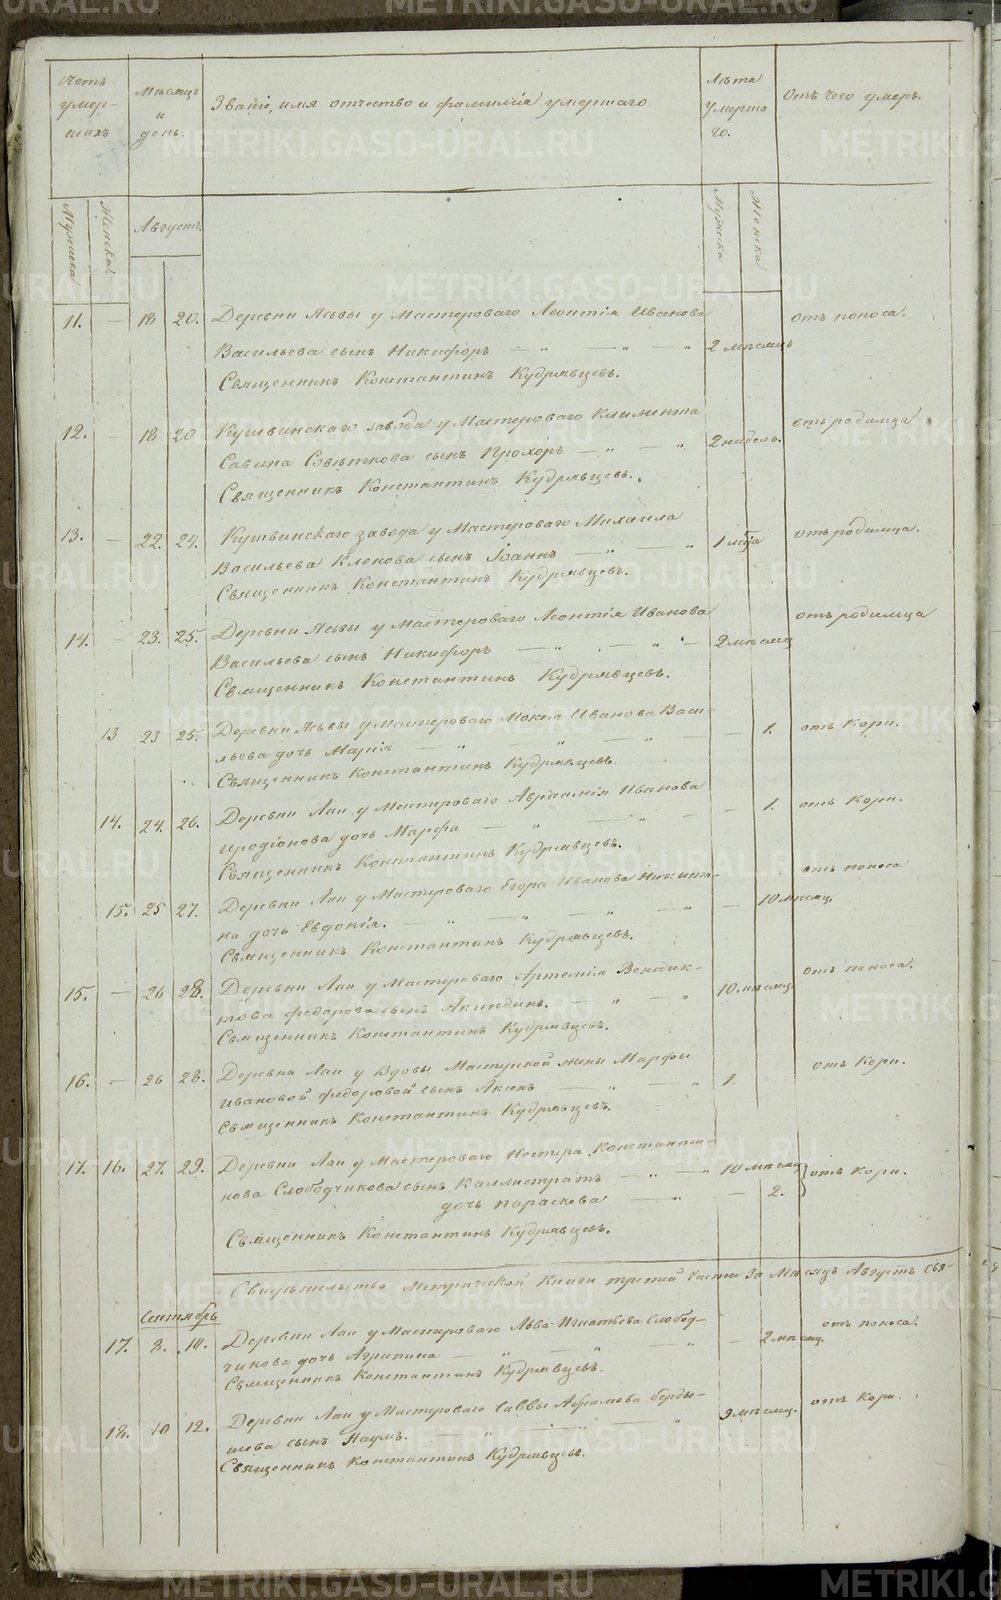 METRIKI.GASO-URAL.RU
Счетъ умершихъ
Мѣсяцъ и день.
Званіе, имя отчество и фамилія умершаго
Лѣта умершаго.
Отъ чего умеръ.
Мужска Женска
Августъ.
Мужска Женска
11. — 18 20. Деревни Ясьвы у Мастероваго Леонтія Иванова отъ поноса.
Васильева сынъ Никифоръ — „ — „ — „ 2 мѣсяцъ
Священникъ Константинъ Кудрявцевъ.
12. — 18 20 Кушвинскаго завода у Мастероваго Климента отъ родимца
Савина сынъ Прохоръ — „ — „ 2 нидель.
Священникъ Константинъ Кудрявцевъ.
13. — 22. 24. Кушвинскаго завода у Мастероваго Михаила отъ родимца.
Васильева Кленова сынъ Іоаннъ — „ — „ 1 года
Священникъ Константинъ Кудрявцевъ.
14. — 23. 25. Деревни Ясьвы у Мастероваго Леонтія Иванова отъ родимца
Васильева сынъ Никифоръ — „ — „ — 2 мѣсяц
Священникъ Константинъ Кудрявцевъ.
13 23 25. Деревни Ясьвы у Мастероваго Мокея Иванова Васи- — 1. отъ Кори.
льева дочь Марія — „ — „ — „
Священникъ Константинъ Кудрявцевъ.
14. 24. 26. Деревни Лаи у Мастероваго Авраамія Иванова — 1. отъ Кори.
Иродіонова дочь Марфа — „ — „ —
Священникъ Константинъ Кудрявцевъ.
15. 25 27. Деревни Лаи у Мастероваго Егора Иванова Никити- — 10 мѣсяц. отъ поноса
на дочь Евдокія. — „ — „ — „ — „
Священникъ Константинъ Кудрявцевъ.
15. — 26 28. Деревни Лаи у Мастероваго Артемія Венедик- 10. мѣсяц. отъ поноса.
това Федорова сынъ Акиндинъ. — „ — „
Священникъ Константинъ Кудрявцевъ.
16. — 26 28. Деревни Лаи у Вдовы Мастерской жены Марфы 1. отъ Кори.
Ивановой Федоровой сынъ — „ — „
Священникъ Константинъ Кудрявцевъ.
17. 16. 27. 29. Деревни Лаи у Мастероваго Нестера Константи- 10 мѣсяц
нова Слободчикова сынъ Каллистратъ — „ — „ отъ Кори.
дочь Параскева — „ — 2.
Священникъ Константинъ Кудрявцевъ.
Свидѣтельство Метрической Книги третій части За Мѣсяцъ Августъ Свя-
Сентябрь
17. 8. 10. Деревни Лаи у Мастероваго Льва Игнатьева Слобод- — 2 мѣсяц. отъ поноса.
чикова дочь Агрипина — „ — „ — „
Священникъ Константинъ Кудрявцевъ.
18. 10 12. Деревни Лаи у Мастероваго Саввы Абрамова Берды- 9 мѣсяц. отъ Кори.
шева сынъ Наумъ. — „ — „ — „
Священникъ Константинъ Кудрявцевъ.